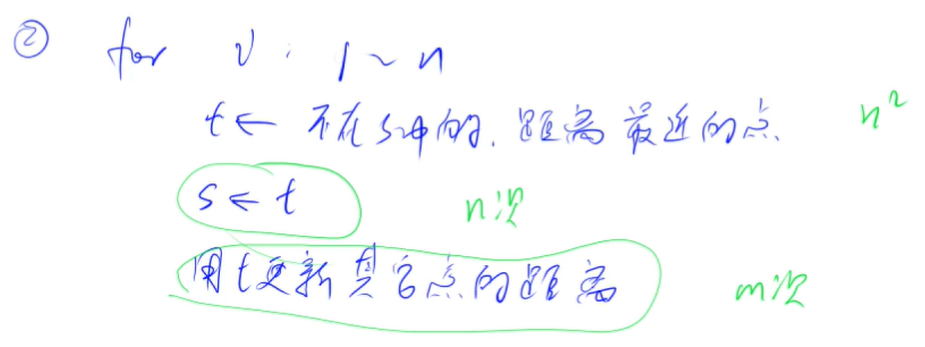 ② for i: 1~n
t ← 不在s中的, 距离最近的点 n²
s ← t n次
用t更新其它点的距离 m次